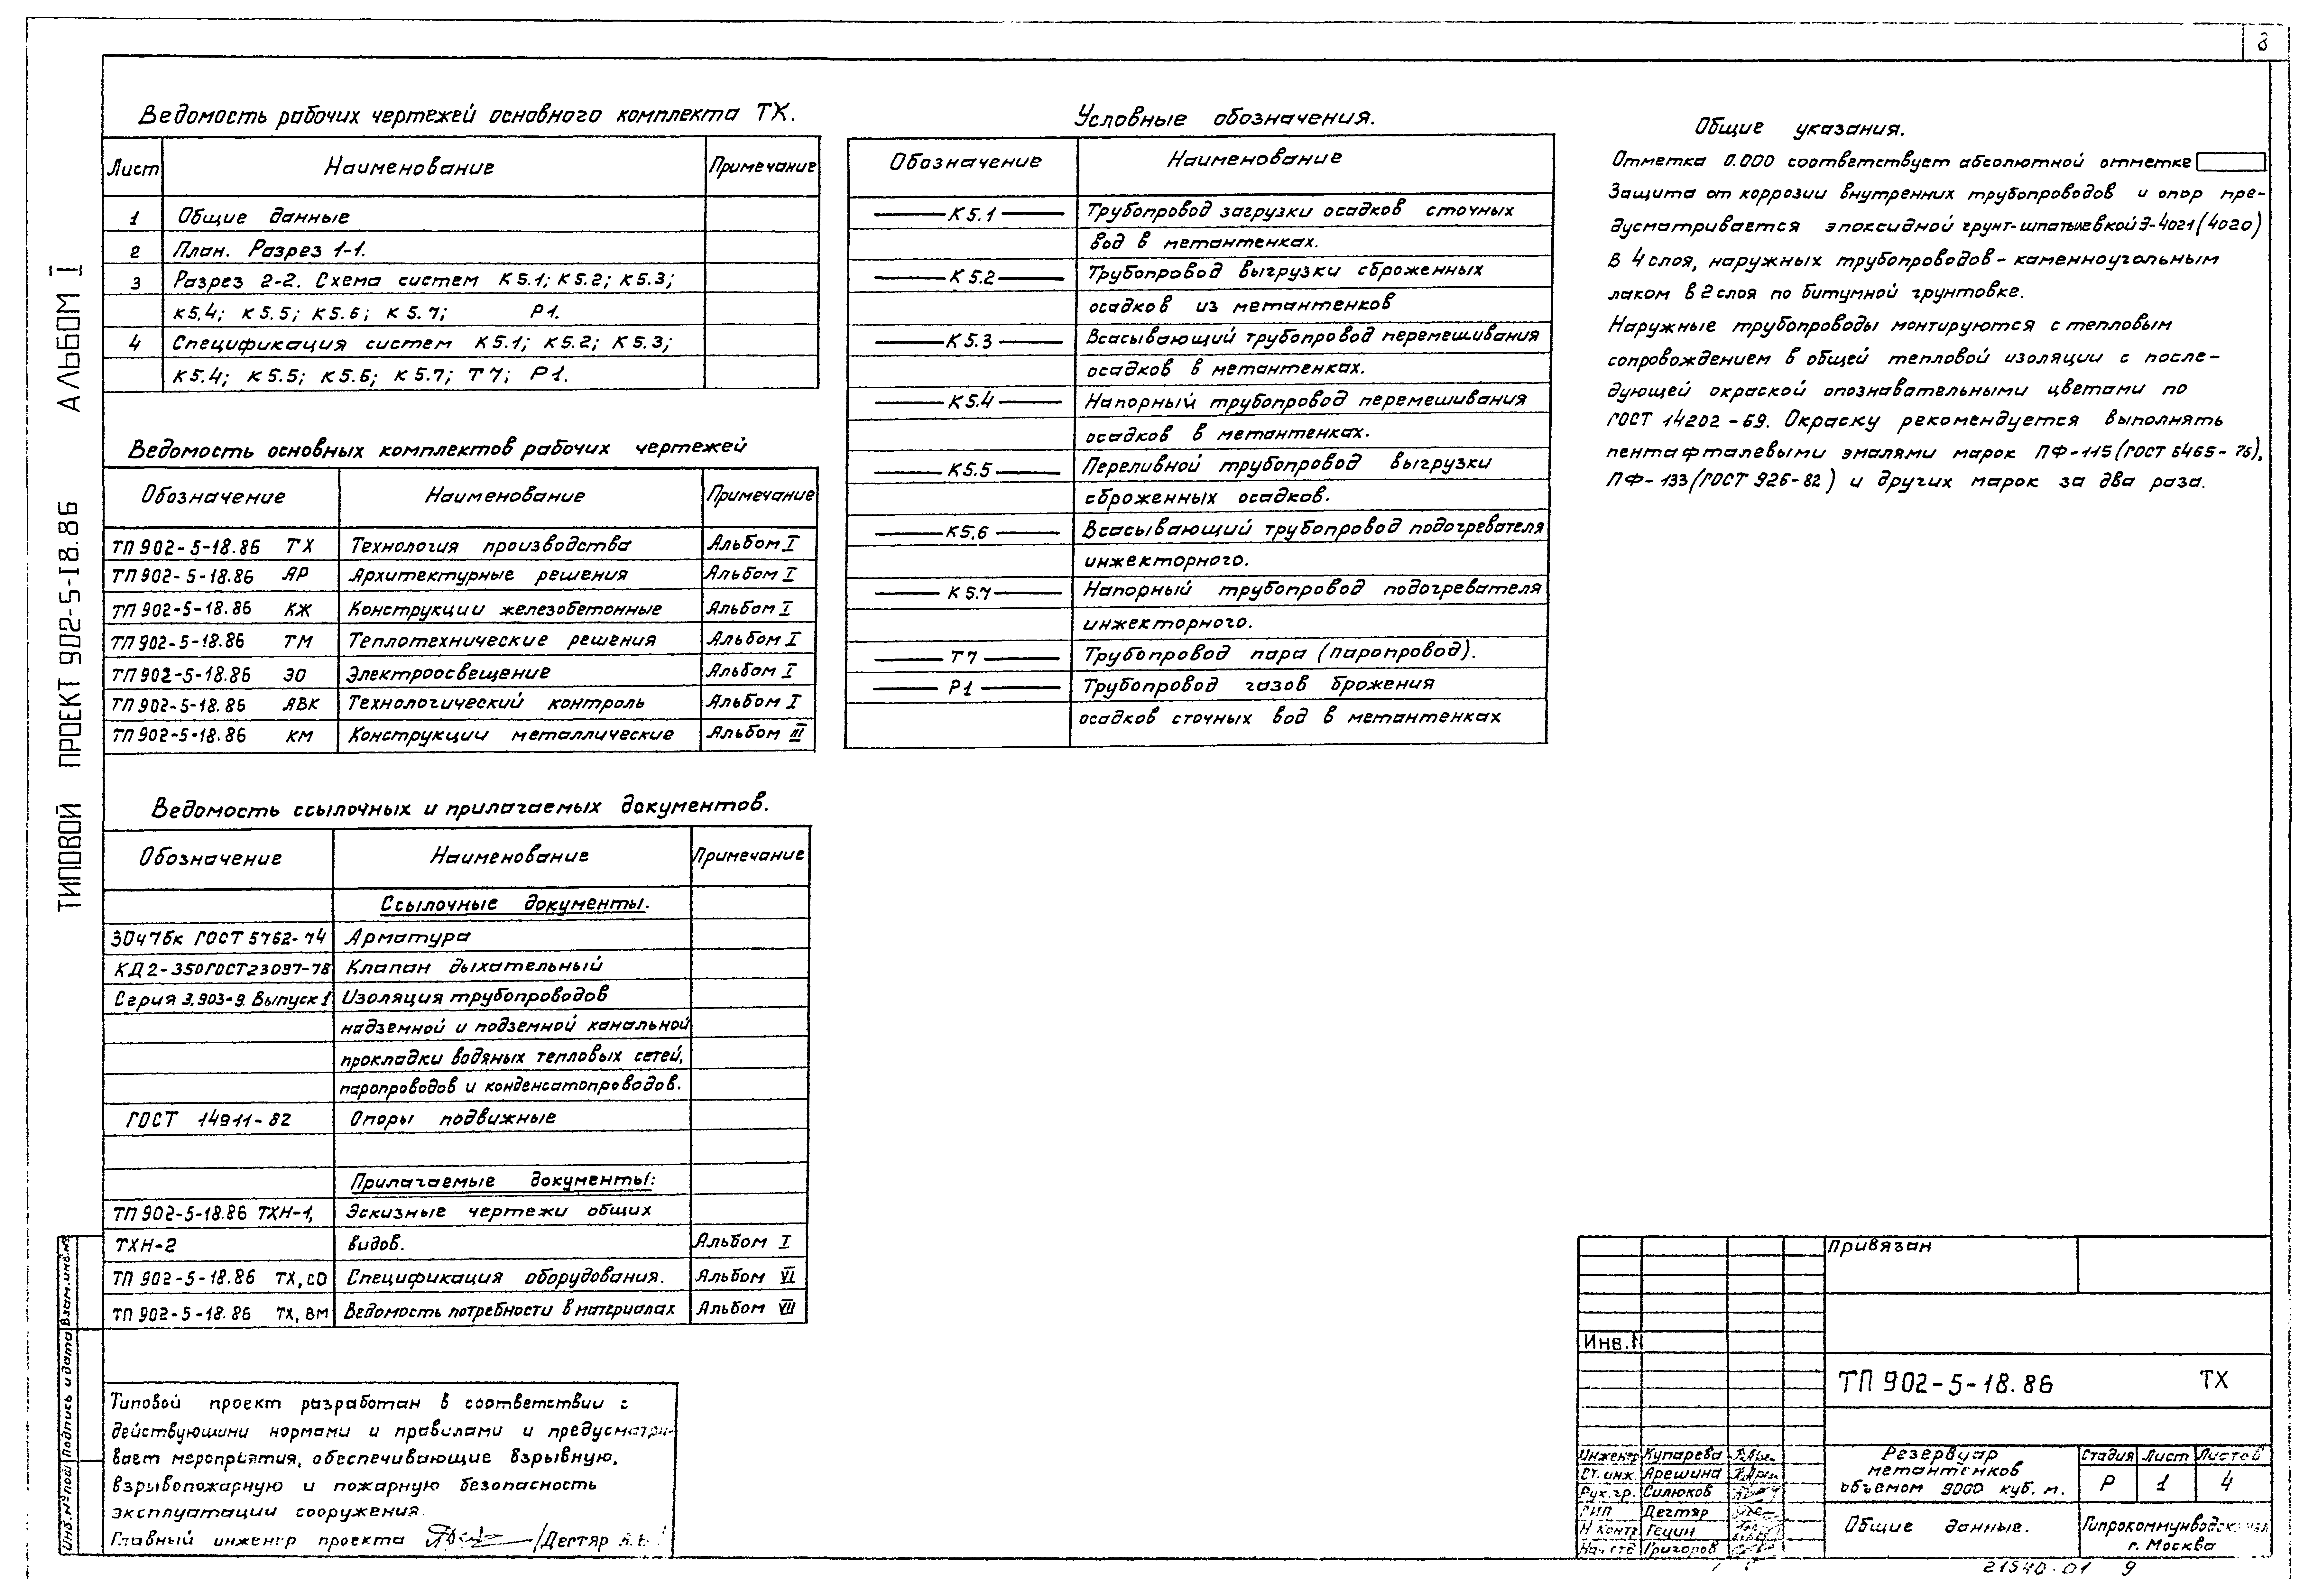 8
ТИПОВОЙ ПРОЕКТ 902-5-18.86 АЛЬБОМ I
Ведомость рабочих чертежей основного комплекта ТХ.
Лист Наименование Примечание
1 Общие данные
2 План. Разрез 1-1.
3 Разрез 2-2. Схема систем К5.1; К5.2; К5.3;
К5.4; К5.5; К5.6; К5.7; Р1.
4 Спецификация систем К5.1; К5.2; К5.3;
К5.4; К5.5; К5.6; К5.7; Т7; Р1.
Ведомость основных комплектов рабочих чертежей
Обозначение Наименование Примечание
ТП 902-5-18.86 ТХ Технология производства Альбом I
ТП 902-5-18.86 АР Архитектурные решения Альбом I
ТП 902-5-18.86 КЖ Конструкции железобетонные Альбом I
ТП 902-5-18.86 ТМ Теплотехнические решения Альбом I
ТП 902-5-18.86 ЭО Электроосвещение Альбом I
ТП 902-5-18.86 АВК Технологический контроль Альбом I
ТП 902-5-18.86 КМ Конструкции металлические Альбом III
Ведомость ссылочных и прилагаемых документов.
Обозначение Наименование Примечание
Ссылочные документы.
30ч7бк ГОСТ 5762-74 Арматура
КД2-350 ГОСТ 23097-78 Клапан дыхательный
Серия 3.903-9. Выпуск 1 Изоляция трубопроводов
надземной и подземной канальной
прокладки водяных тепловых сетей,
паропроводов и конденсатопроводов.
ГОСТ 14911-82 Опоры подвижные
Прилагаемые документы:
ТП 902-5-18.86 ТХН-1, Эскизные чертежи общих
ТХН-2 видов. Альбом I
ТП 902-5-18.86 ТХ,СО Спецификация оборудования. Альбом VI
ТП 902-5-18.86 ТХ, ВМ Ведомость потребности в материалах Альбом VII
Типовой проект разработан в соответствии с
действующими нормами и правилами и предусматри-
вает мероприятия, обеспечивающие взрывную,
взрывопожарную и пожарную безопасность
эксплуатации сооружения.
Главный инженер проекта /Дегтяр
Условные обозначения.
Обозначение Наименование
К5.1 Трубопровод загрузки осадков сточных
вод в метантенках.
К5.2 Трубопровод выгрузки сброженных
осадков из метантенков
К5.3 Всасывающий трубопровод перемешивания
осадков в метантенках.
К5.4 Напорный трубопровод перемешивания
осадков в метантенках.
К5.5 Переливной трубопровод выгрузки
сброженных осадков.
К5.6 Всасывающий трубопровод подогревателя
инжекторного.
К5.7 Напорный трубопровод подогревателя
инжекторного.
Т7 Трубопровод пара (паропровод).
Р1 Трубопровод газов брожения
осадков сточных вод в метантенках
Общие указания.
Отметка 0.000 соответствует абсолютной отметке
Защита от коррозии внутренних трубопроводов и опор пре-
дусматривается эпоксидной грунт-шпатлевкой Э-4021 (4020)
в 4 слоя, наружных трубопроводов - каменноугольным
лаком в 2 слоя по битумной грунтовке.
Наружные трубопроводы монтируются с тепловым
сопровождением в общей тепловой изоляции с после-
дующей окраской опознавательными цветами по
ГОСТ 14202-69. Окраску рекомендуется выполнять
пентафталевыми эмалями марок ПФ-115 (ГОСТ 6465-76),
ПФ-133 (ГОСТ 926-82) и других марок за два раза.
Привязан
Инв. N
ТП 902-5-18.86 ТХ
Инженер Купарева
Ст. инж. Арешина
Рук. гр. Силюков
ГИП Дегтяр
Н контр Гецин
Нач. отд Григоров
Резервуар
метантенков
объемом 9000 куб. м.
Стадия Лист Листов
Р 1 4
Общие данные.
Гипрокоммунводоканал
г. Москва
Инв. № подл Подпись и дата Взам. инв. №
21540-01 9